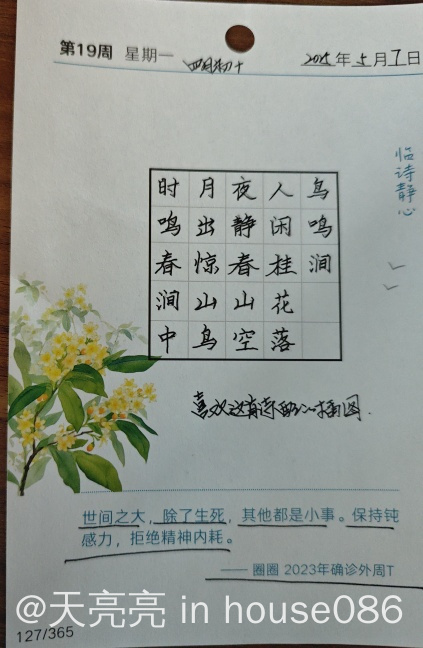 第19周 星期一 四月初十 2025年5月7日
临诗静心
时 月 夜 人 鸟
鸣 出 静 闲 鸣
春 惊 春 桂 涧
涧 山 山 花
中 鸟 空 落
喜欢这首诗的插图.
世间之大，除了生死，其他都是小事。保持钝
感力，拒绝精神内耗。
—— 圈圈 2023年确诊外周T
@天亮亮 in house086
127/365